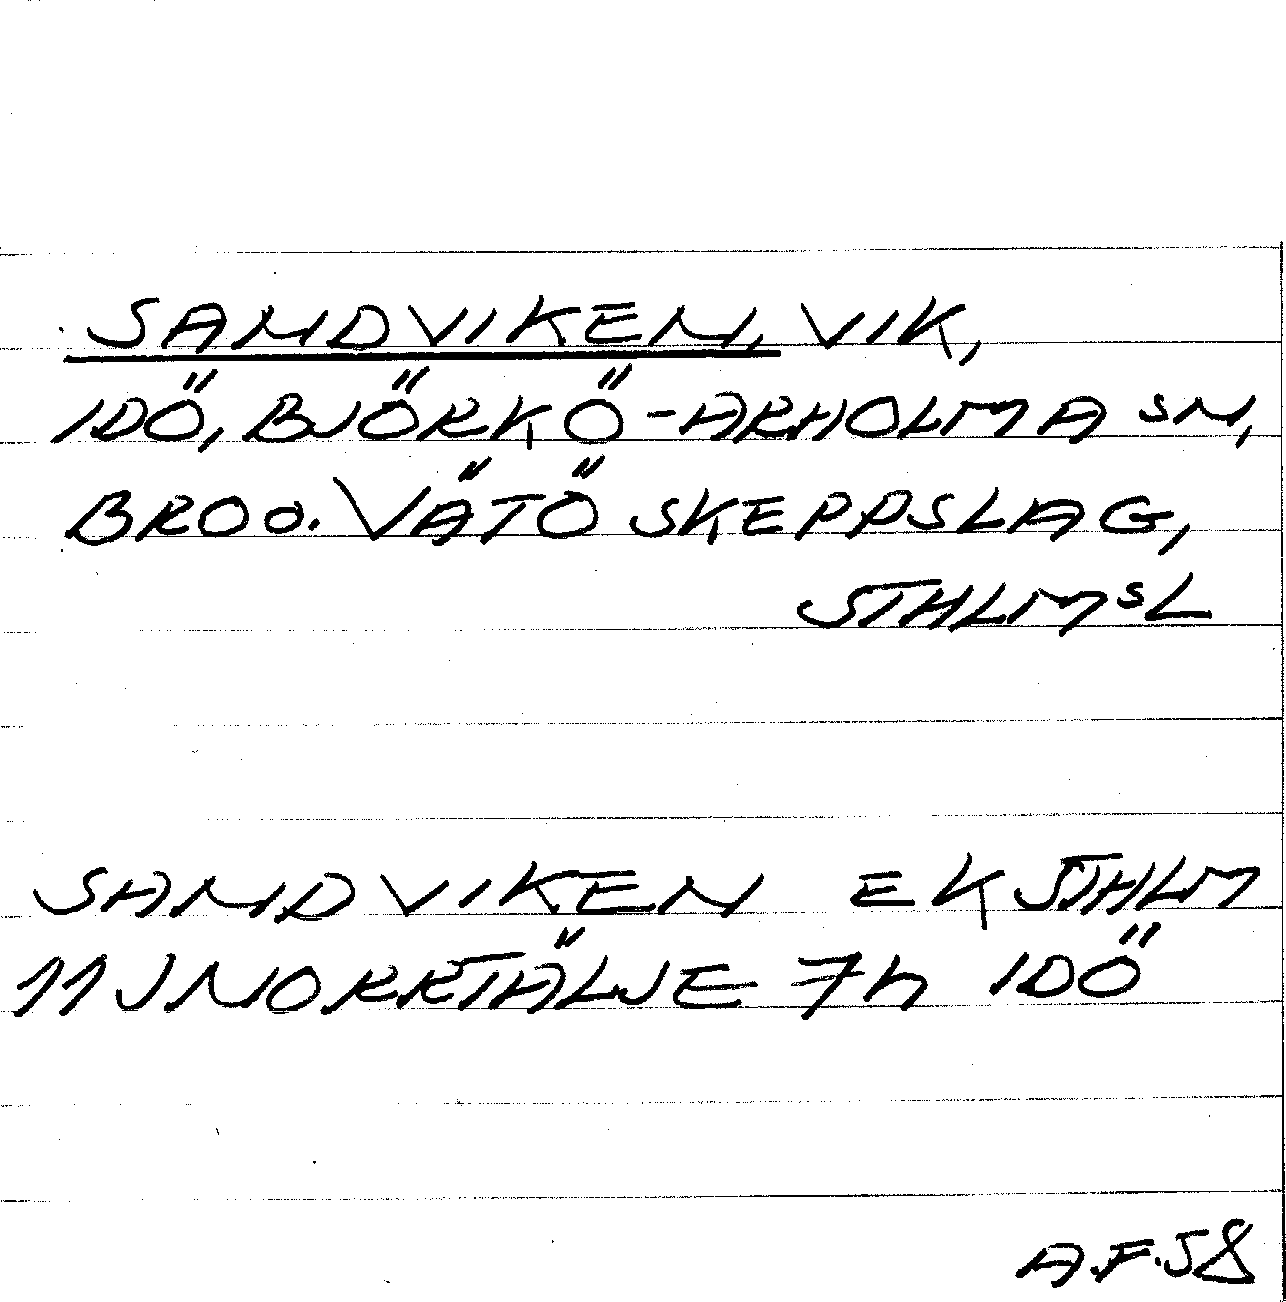 SANDVIKEN, VIK,
IDÖ, BJÖRKÖ-ARHOLMA SN,
BRO O. VÄTÖ SKEPPSLAG,
STHLMSL
SANDVIKEN EK STHLM
11J NORRTÄLJE 7h IDÖ
A.F.58